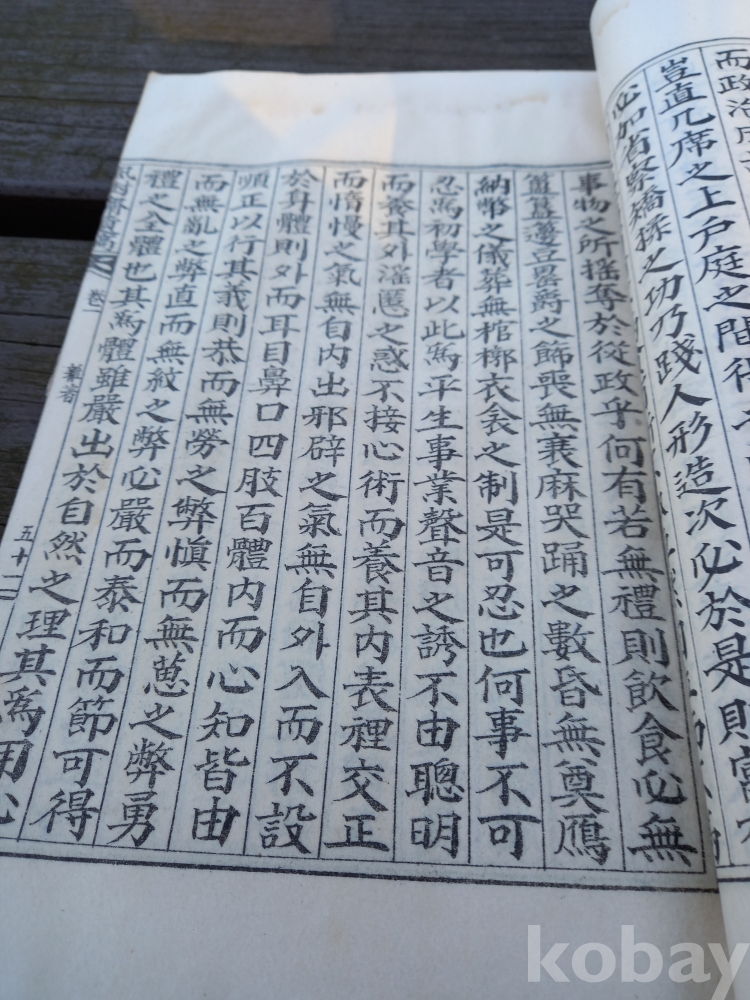 而政治
豈直几席之上戶庭之間
必如省察矯揉之功乃踐人形造次必於是則
事物之所搖奪於從政乎何有若無禮則飲食必無
簠簋籩豆罍爵之飾喪無衰麻哭踊之數昏無奠鴈
納幣之儀葬無棺槨衣衾之制是可忍也何事不可
忍焉初學者以此爲平生事業聲音之誘不由聰明
而養其外滛慝之惑不接心術而養其內表裡交正
而惰慢之氣無自內出邪辟之氣無自外入而不設
於身體則外而耳目鼻口四肢百體內而心知皆由
順正以行其義則恭而無勞之弊愼而無葸之弊勇
而無亂之弊直而無紋之弊必嚴而泰和而節可得
禮之全體也其爲體雖嚴出於自然之理其爲用必
卷一 雜著 五十二
kobay